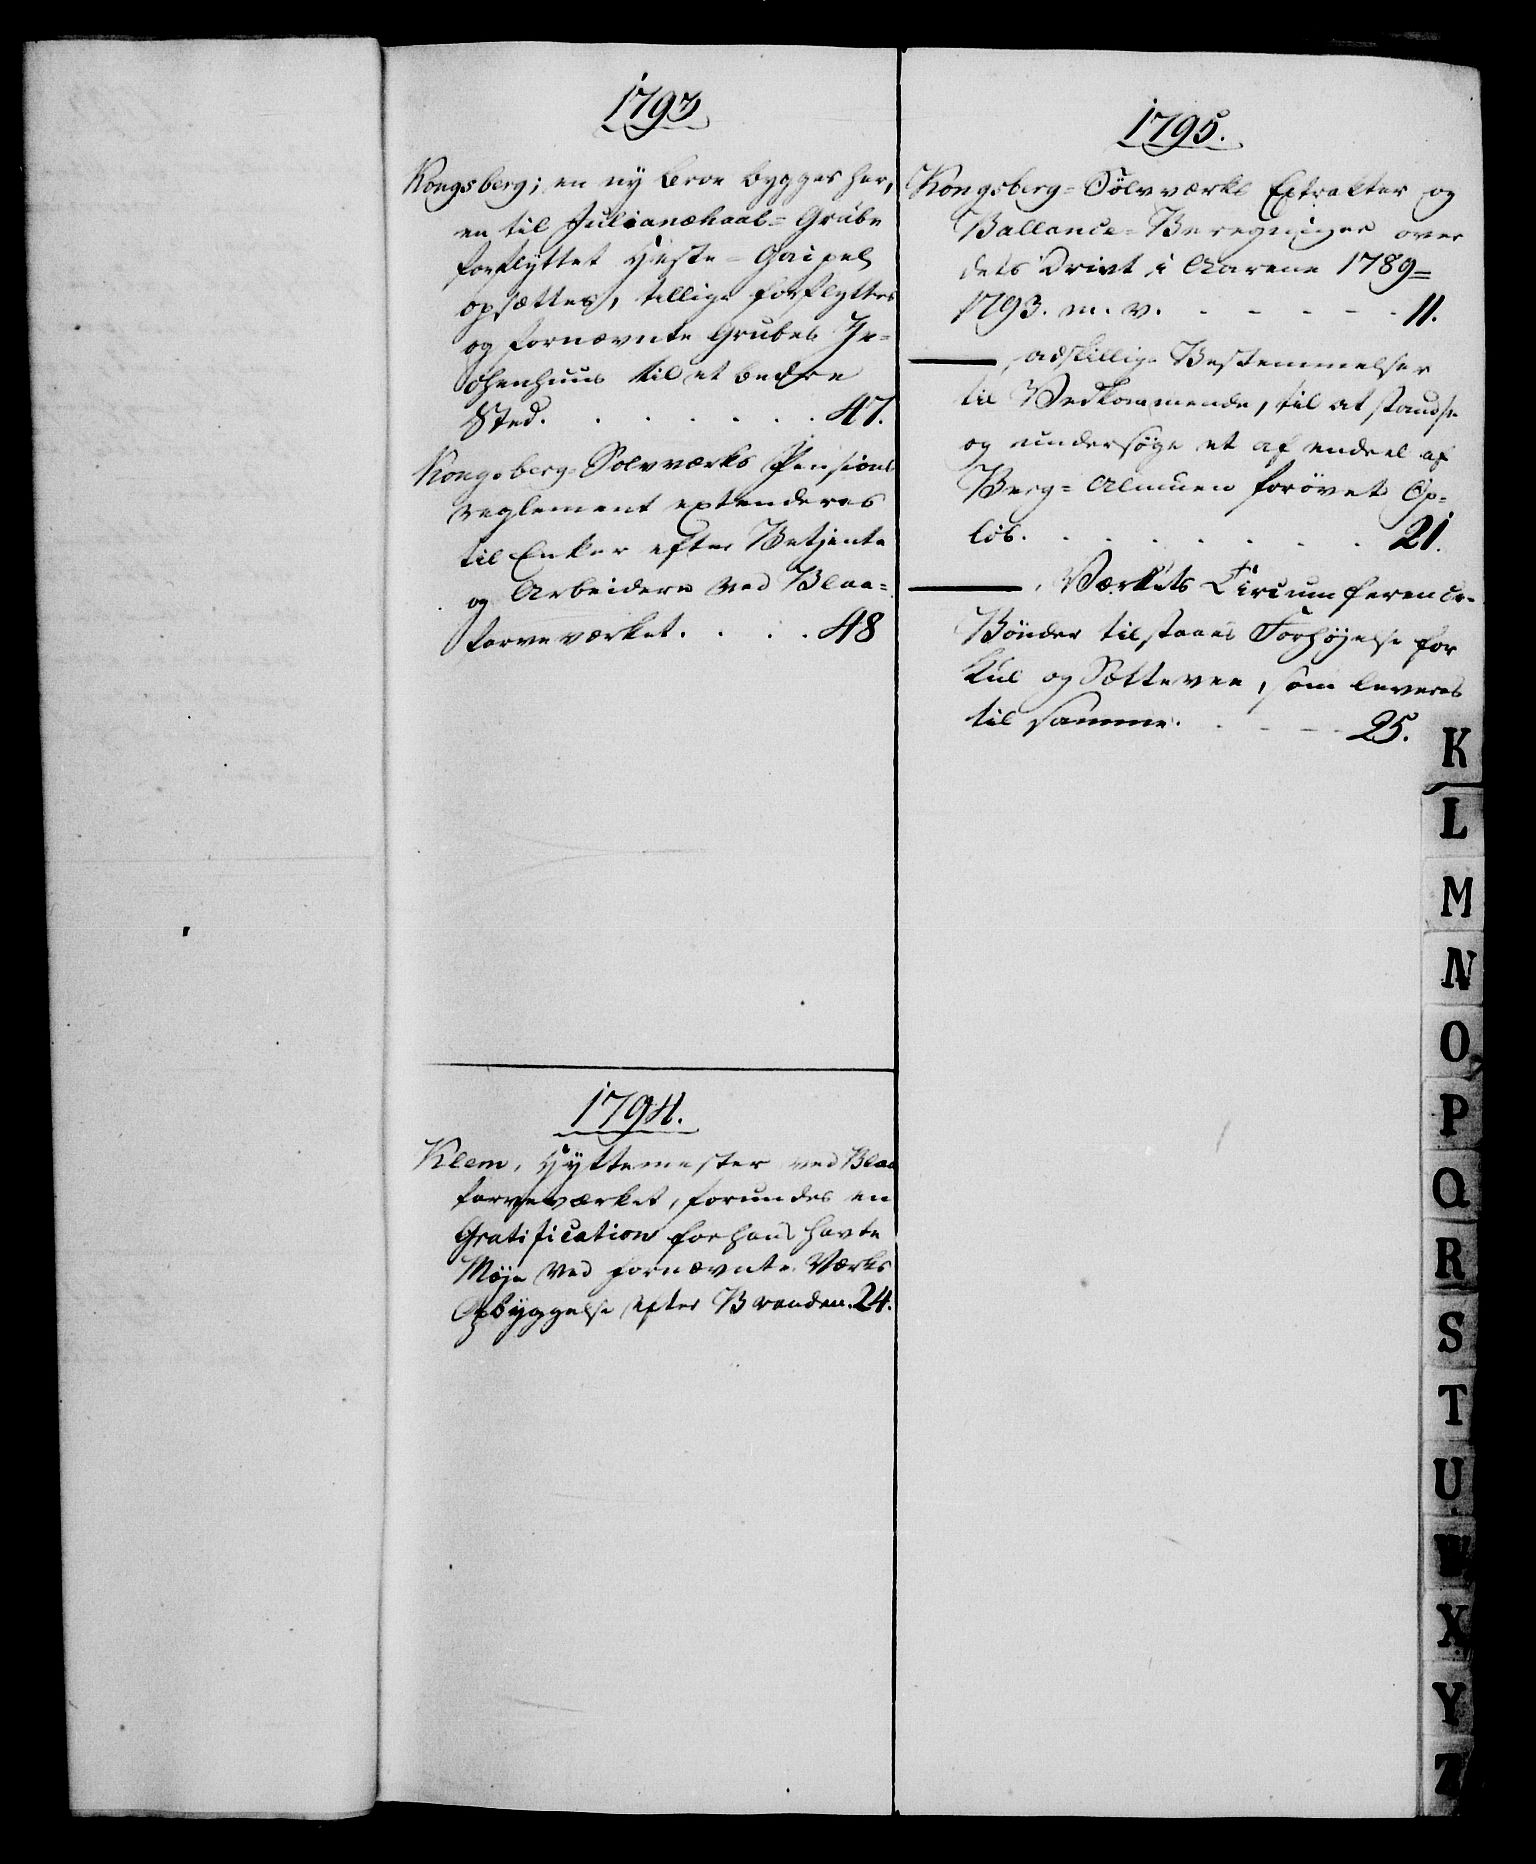 1793
Kongsberg; en ny Broe bygges her,
en til Julianæhaab= Grube
forflyttet Heste= Gaipel
opsættes, tillige forflyttes
og fornævnte Grubes
til et bedre
Sted. . . . . . . . 47.
Kongsberg= Sølvværks Pensions
reglement extenderes
til Enker efter Betjente
og Arbeidere ved Blaa=
farveværket. . . . . 48
1794.
Klem, Hyttemester ved Blaa
farveværket, forundes en
Gratification for hans havte
Møje ved fornævnte Værks
Opbyggelse efter Branden. 24.
1795.
Kongsberg= Sølvværks Extrakter og
Ballance= Beregninger over
dets Drivt i Aarene 1789=
1793. m. v. - - - - - 11.
——— , adskillige Bestemmelser
til Vedkommende, til at standse
og undersøge et af endeel af
Berg= Almuen forøvet Op=
løb. . . . . . . . . 21.
——— , Værkets Circumference=
Bønder tilstaaes Forhøjelse for
Kul og Sætteved, som leveres
til samme. - - - - 25.
K
L
M
N
O
P
Q
R
S
T
U
W
X
Y
Z